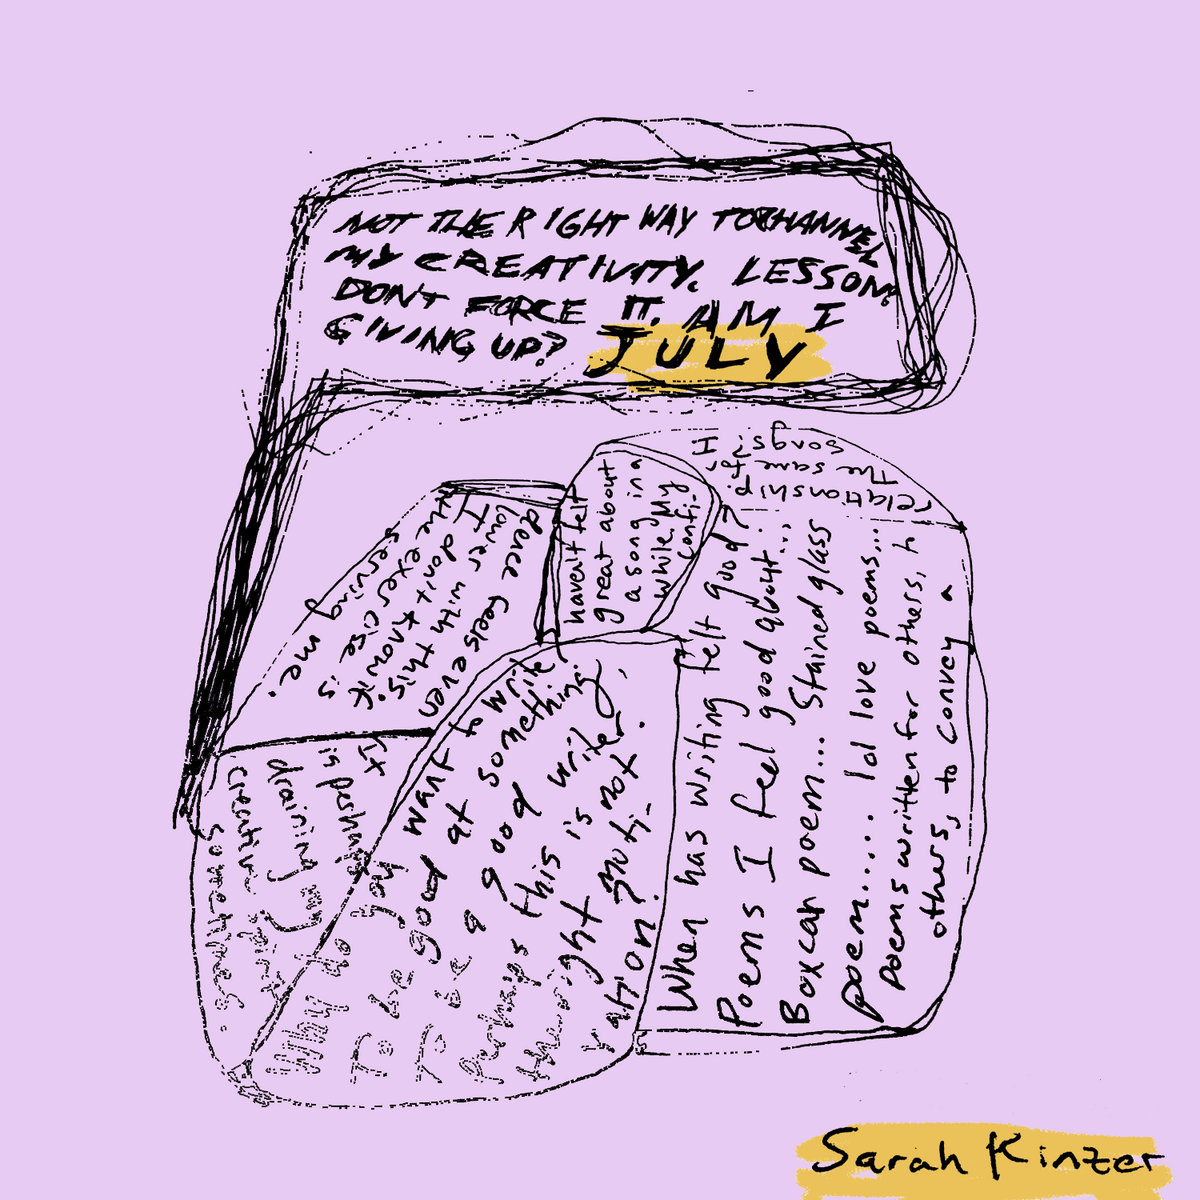 NOT THE RIGHT WAY TO CHANNEL
MY CREATIVITY. LESSON:
DON'T FORCE IT. AM I
GIVING UP? JULY
Why do you want to write
To be good at something.
To be a good writer,
perhaps this is not
the right moti-
vation?
When has writing felt good?
Poems I feel good about...
Boxcar poem... Stained glass
poem.... lol love poems...
poems written for others, h
others, to convey a
relationship.
The same for
songs? I
haven't felt
great about
a song in a
while. My
confi-
dence feels even
lower with this.
I don't know if
the exercise is
serving me.
It
is perhaps
draining my
creative
sometimes.
Sarah Kinzer